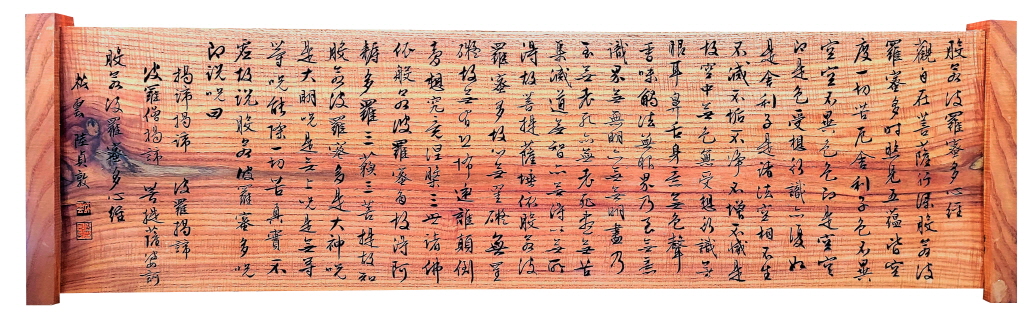 般若波羅蜜多心經
觀自在菩薩行深般若波
羅蜜多時照見五蘊皆空
度一切苦厄舍利子色不異
空空不異色色即是空空
即是色受想行識亦復如
是舍利子是諸法空相不生
不滅不垢不淨不增不減是
故空中無色無受想行識無
眼耳鼻舌身意無色聲
香味觸法無眼界乃至無意
識界無無明亦無無明盡乃
至無老死亦無老死盡無苦
集滅道無智亦無得以無所
得故菩提薩埵依般若波
羅蜜多故心無罣礙無罣
礙故無有恐怖遠離顛倒
夢想究竟涅槃三世諸佛
依般若波羅蜜多故得阿
耨多羅三藐三菩提故知
般若波羅蜜多是大神咒
是大明咒是無上咒是無等
等咒能除一切苦真實不
虛故說般若波羅蜜多咒
即說咒曰
揭諦揭諦 波羅揭諦
波羅僧揭諦 菩提薩婆訶
般若波羅蜜多心經
雲 陸貞敦